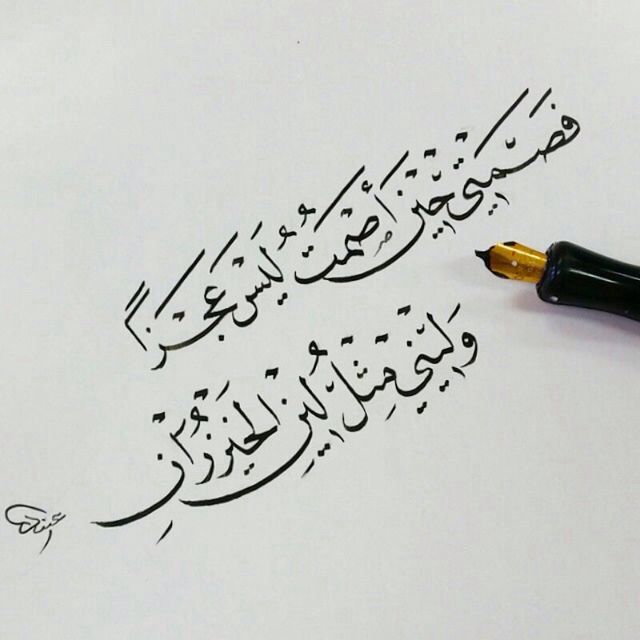 فَصَمْتِي حِينَ أَصْمُتُ لَيْسَ عَجْزًا
وَلِيْنِي مِثْلُ لِينِ الخَيْزُرَانِ